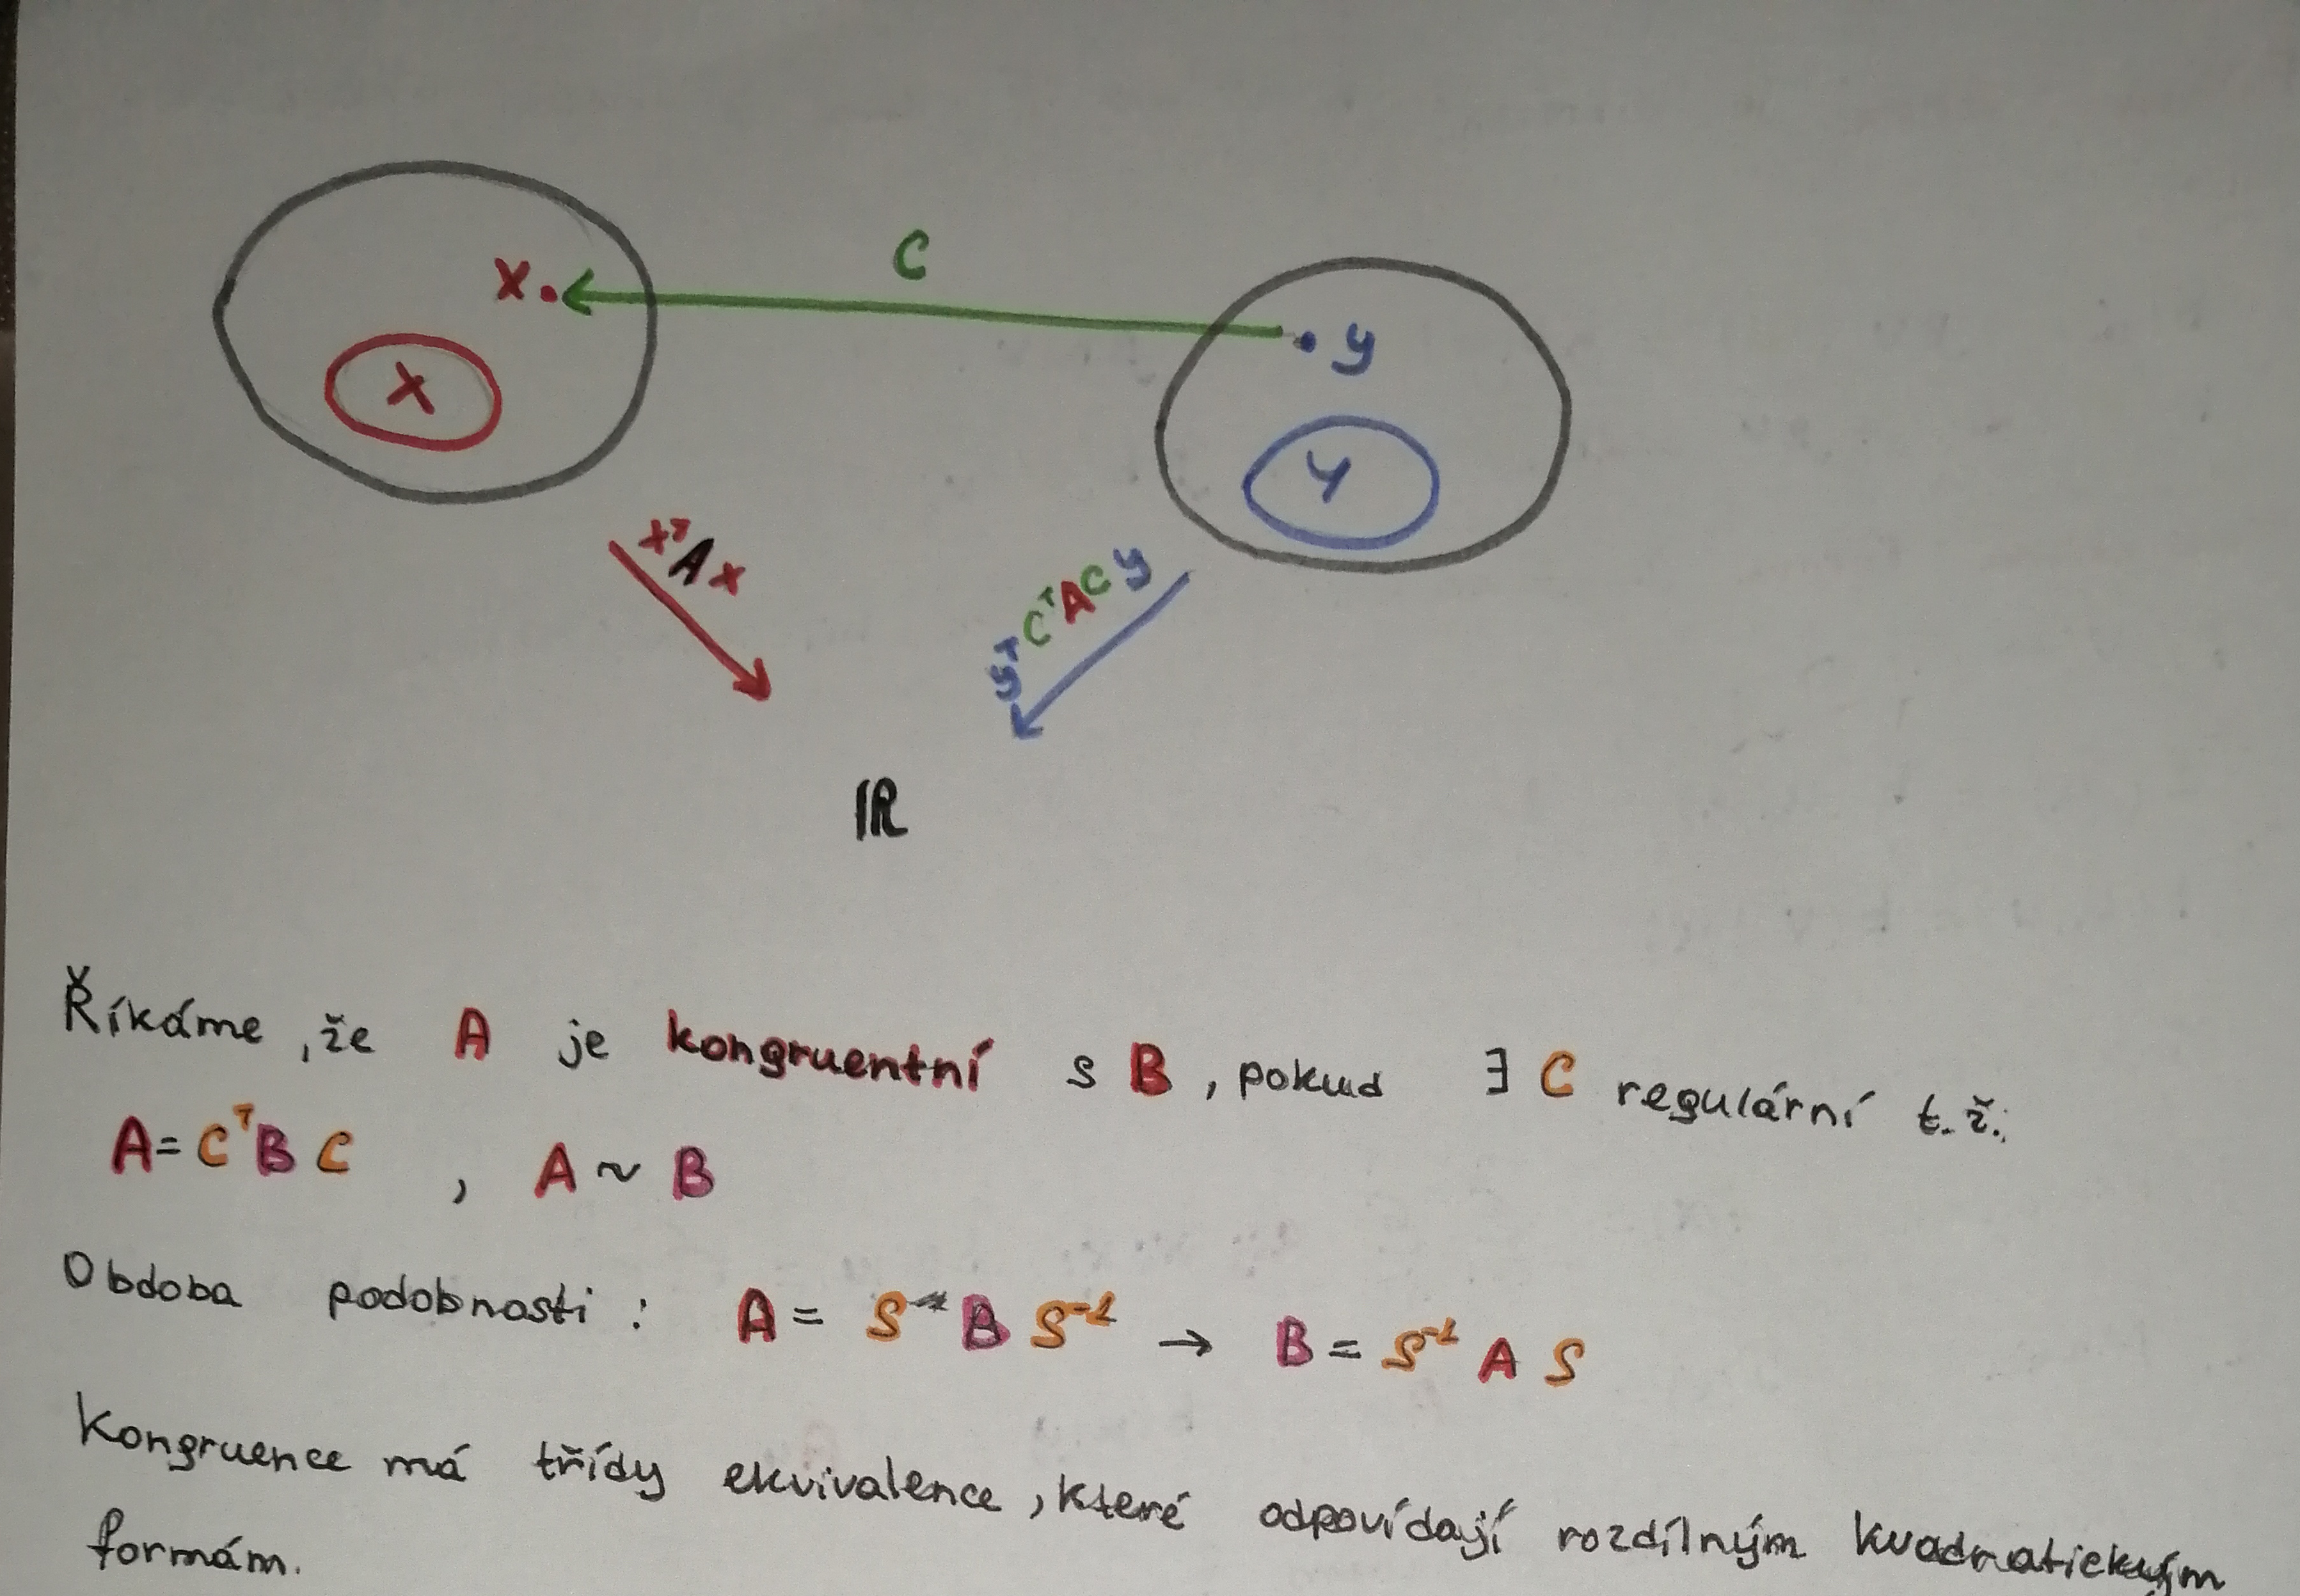 C
x
y
X
Y
xᵀAx
yᵀCᵀACy
ℝ
Říkáme, že A je kongruentní s B, pokud ∃ C regulární t.ž.:
A = CᵀBC , A ~ B
Obdoba podobnosti: A = S B S⁻¹ → B = S⁻¹ A S
Kongruence má třídy ekvivalence, které odpovídají rozdílným kvadratickým
formám.